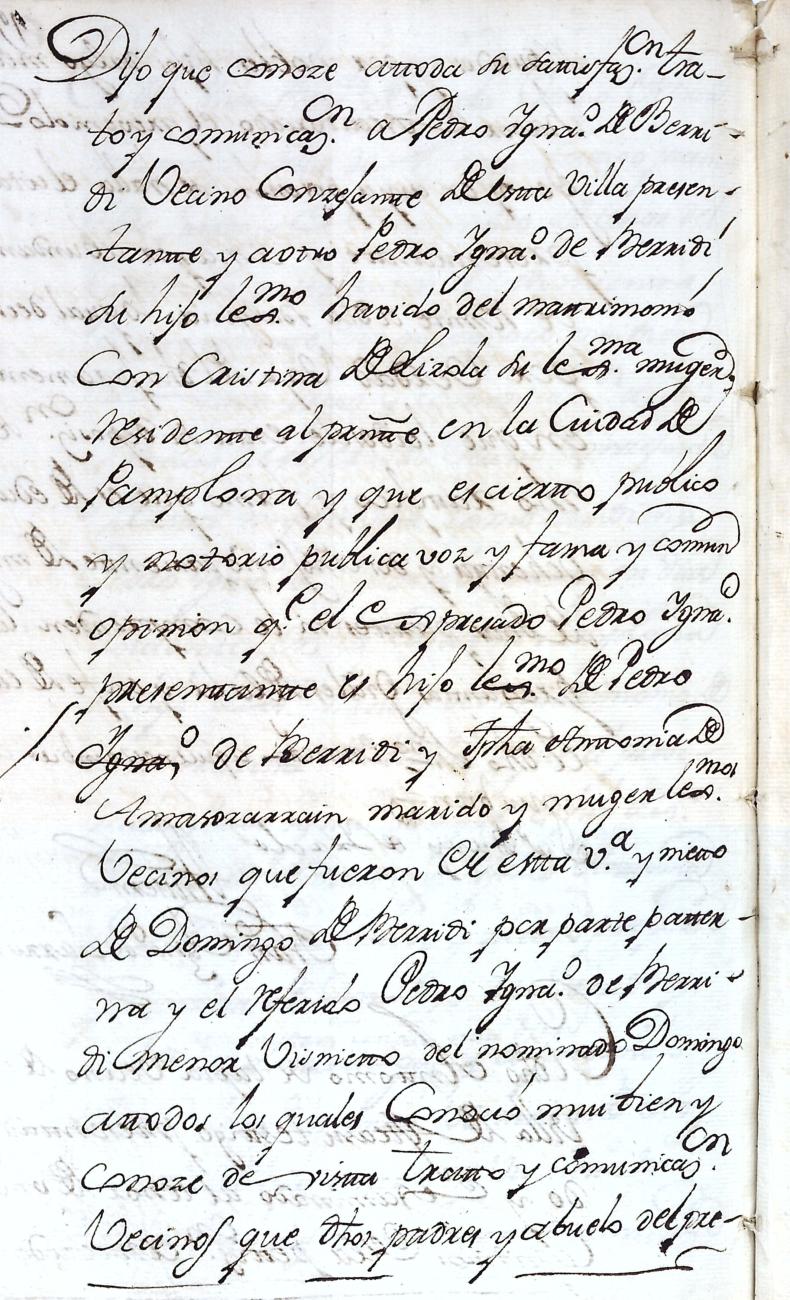 Dijo que conoze attoda su sattisfaz.on tra-
to y comunicaz.on a Pedro Igna.o de Berri-
di Vecino Conzejante de esta Villa presen-
tante y a otro Pedro Igna.o de Berridi
su hijo lex.mo havido del matrimonio
Con Cristina de Lizola su lex.ma muger
residente al presn̄te en la Ciudad de
Pamplona y que es cierto publico
y notorio publica voz y fama y comun
opinion q.e el expresado Pedro Igna.o
presentante es hijo lex.mo de Pedro
Igna.o de Berridi y Jpha Antonia de
Amasorarrain marido y muger lex.mos
Vecinos que fueron de esta v.a y nieto
de Domingo de Berridi por parte patter-
na y el referido Pedro Igna.o de Berri-
di menor Visnietto del nominado Domingo
attodos los quales Conoció mui bien y
conoze de vista tratto y comunicaz.on
Vecinos que dhos padres y abuelo del pre-